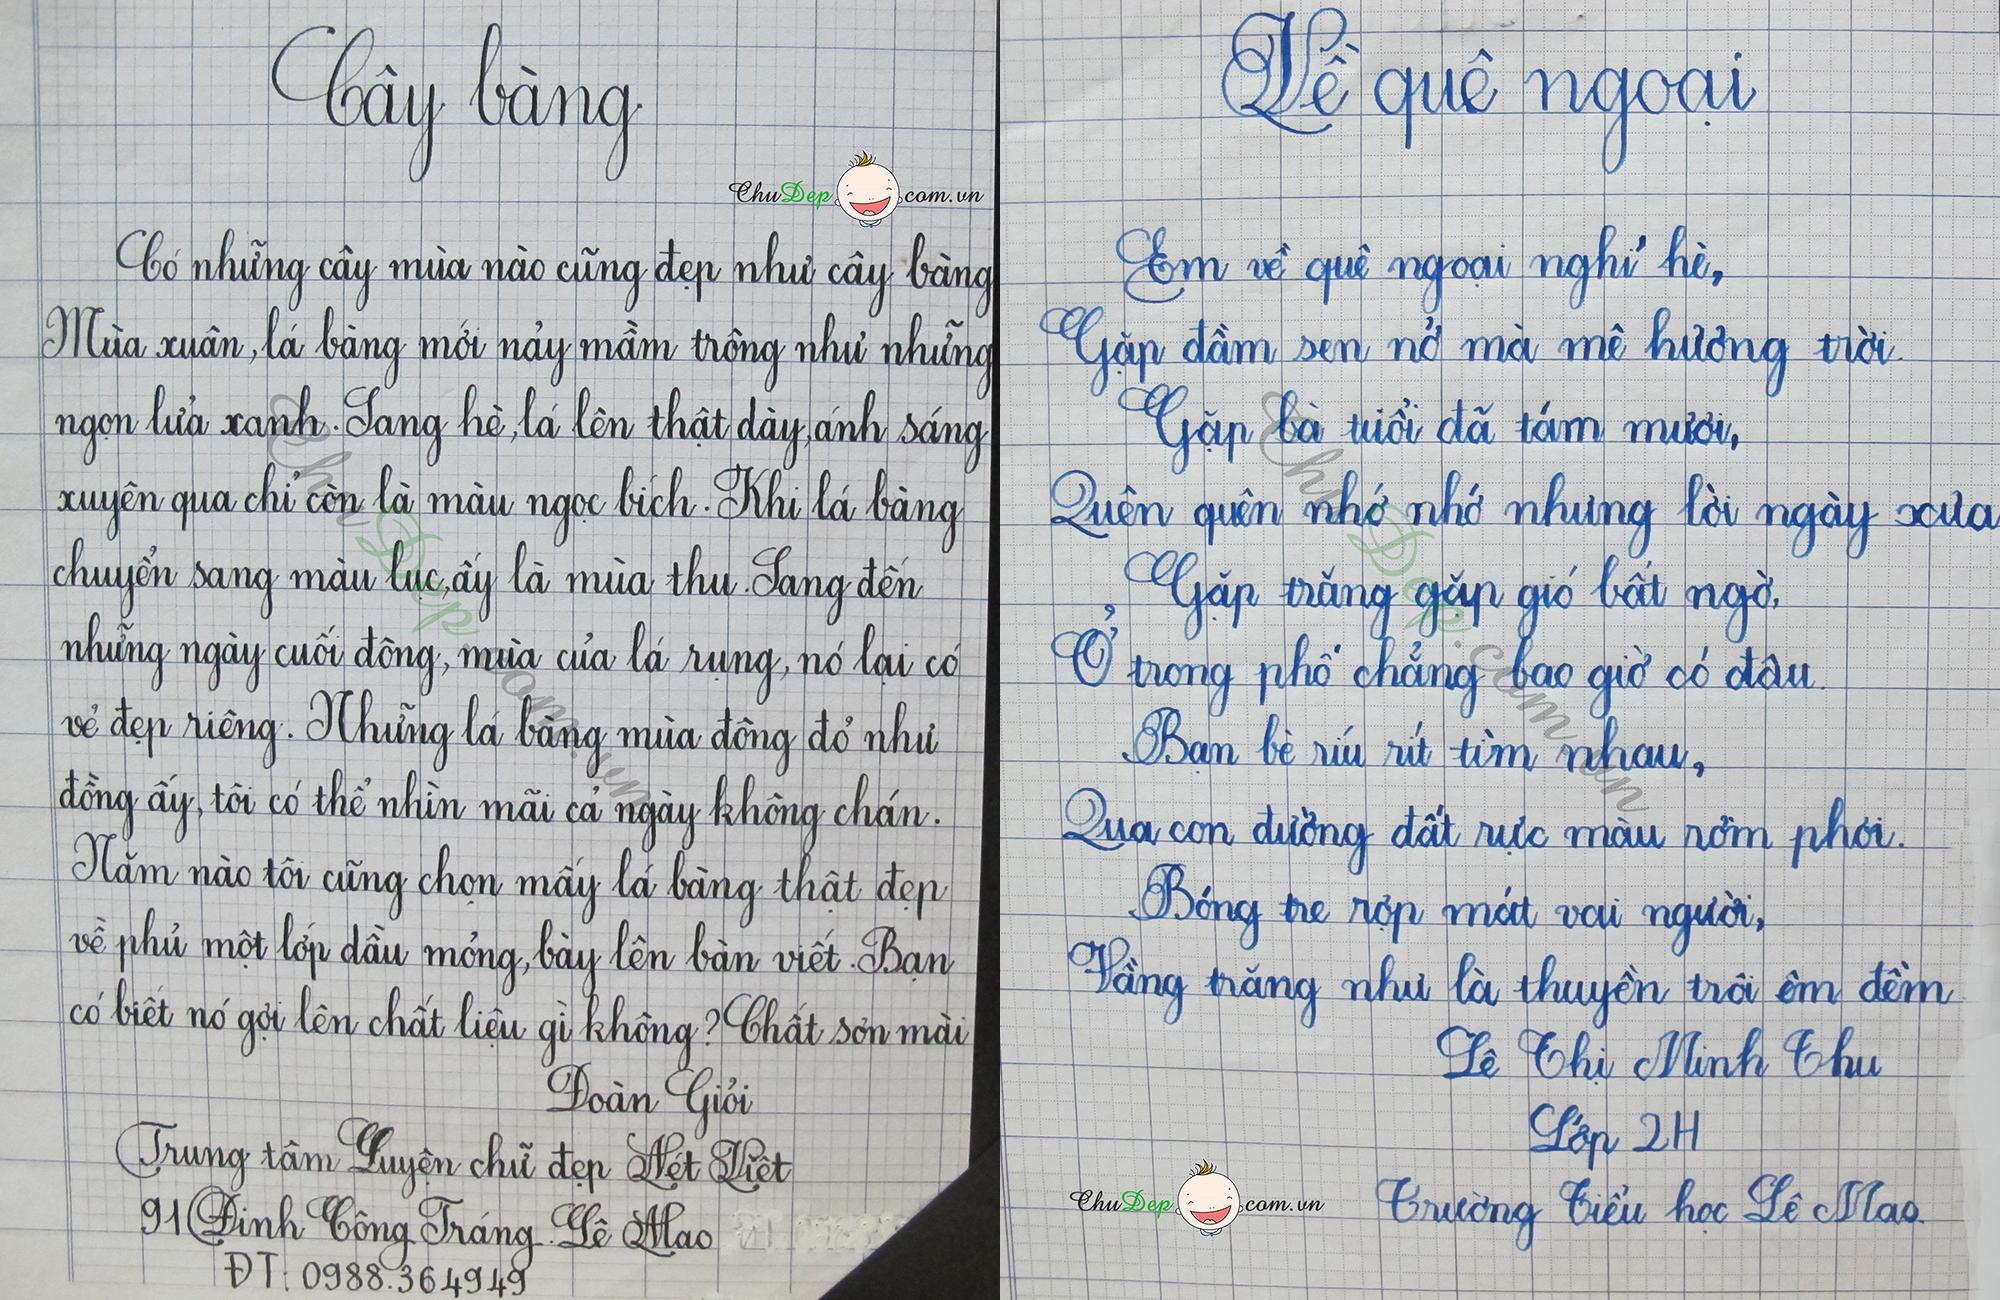 Cây bàng
ChuDep.com.vn
Có những cây mùa nào cũng đẹp như cây bàng
Mùa xuân, lá bàng mới nảy mầm trông như những
ngọn lửa xanh. Sang hè, lá lên thật dày, ánh sáng
xuyên qua chỉ còn là màu ngọc bích. Khi lá bàng
chuyển sang màu lục, ấy là mùa thu. Sang đến
những ngày cuối đông, mùa của lá rụng, nó lại có
vẻ đẹp riêng. Những lá bàng mùa đông đỏ như
đồng ấy, tôi có thể nhìn mãi cả ngày không chán.
Năm nào tôi cũng chọn mấy lá bàng thật đẹp
về phủ một lớp dầu mỏng, bày lên bàn viết. Bạn
có biết nó gợi lên chất liệu gì không? Chất sơn mài
Đoàn Giỏi
Trung tâm Luyện chữ đẹp Nét Việt
91 Đinh Công Tráng. Lê Mao
ĐT: 0988.364949
ChuDep.com.vn
Về quê ngoại
Em về quê ngoại nghỉ hè,
Gặp đầm sen nở mà mê hương trời.
Gặp bà tuổi đã tám mươi,
Quên quên nhớ nhớ nhưng lời ngày xưa
Gặp trăng gặp gió bất ngờ.
Ở trong phố chẳng bao giờ có đâu.
Bạn bè ríu rít tìm nhau,
Qua con đường đất rực màu rơm phơi.
Bóng tre rợp mát vai người,
Vầng trăng như là thuyền trôi êm đềm
Lê Thị Minh Thu
Lớp 2H
Trường Tiểu học Lê Mao.
ChuDep.com.vn
ChuDep.com.vn